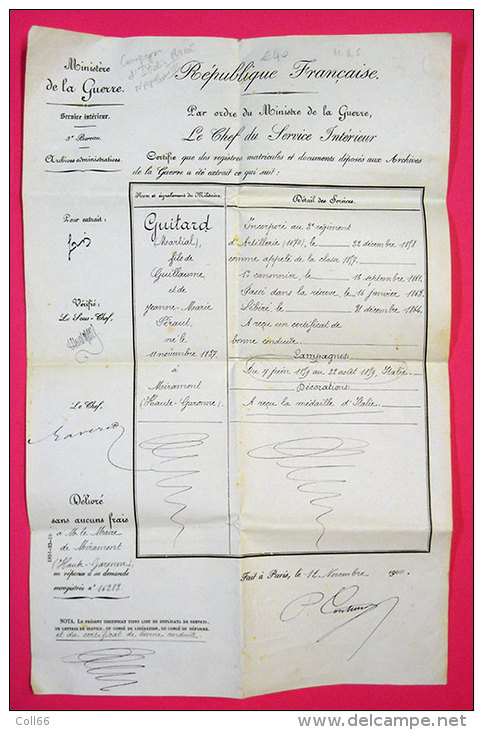 Ministère
de la Guerre.
Service intérieur.
3e Bureau.
Archives administratives.
Pour extrait:
Vérifié:
Le Sous-Chef,
Le Chef,
Délivré
sans aucuns frais
à M. le Maire
de Miramont
(Haute-Garonne)
en réponse à sa demande
enregistrée n° 16288
NOTA. LA PRÉSENT CERTIFICAT TIENT LIEU DE DUPLICATA DE BREVETS,
DE LETTRES DE SERVICE, DU CONGÉ DE LIBÉRATION, DU CONGÉ DE RÉFORME,
et du certificat de bonne conduite.
République Française.
Par ordre du Ministre de la Guerre,
Le Chef du Service Intérieur
Certifie que des registres matricules et documents déposés aux Archives
de la Guerre a été extrait ce qui suit:
Nom et signalement du Militaire.
Guitard
(Martial),
fils de
Guillaume
et de
Jeanne-Marie
né le
11 novembre 1837
à
Miramont
(Haute-Garonne).
Détail des Services.
Incorporé au 2e régiment
d'Artillerie le 22 décembre 1858
comme appelé de la classe 1857.
1er canonnier, le 16 septembre 1861.
Passé dans la réserve le 15 janvier 1863.
Libéré le 31 décembre 1864.
A reçu un certificat de
bonne conduite.
Campagnes
Du 7 juin 1859 au 22 août 1859, Italie.
Décorations
A reçu la médaille d'Italie.
Fait à Paris, le 12 Novembre 1900.
Coll66
www.delcampe.net